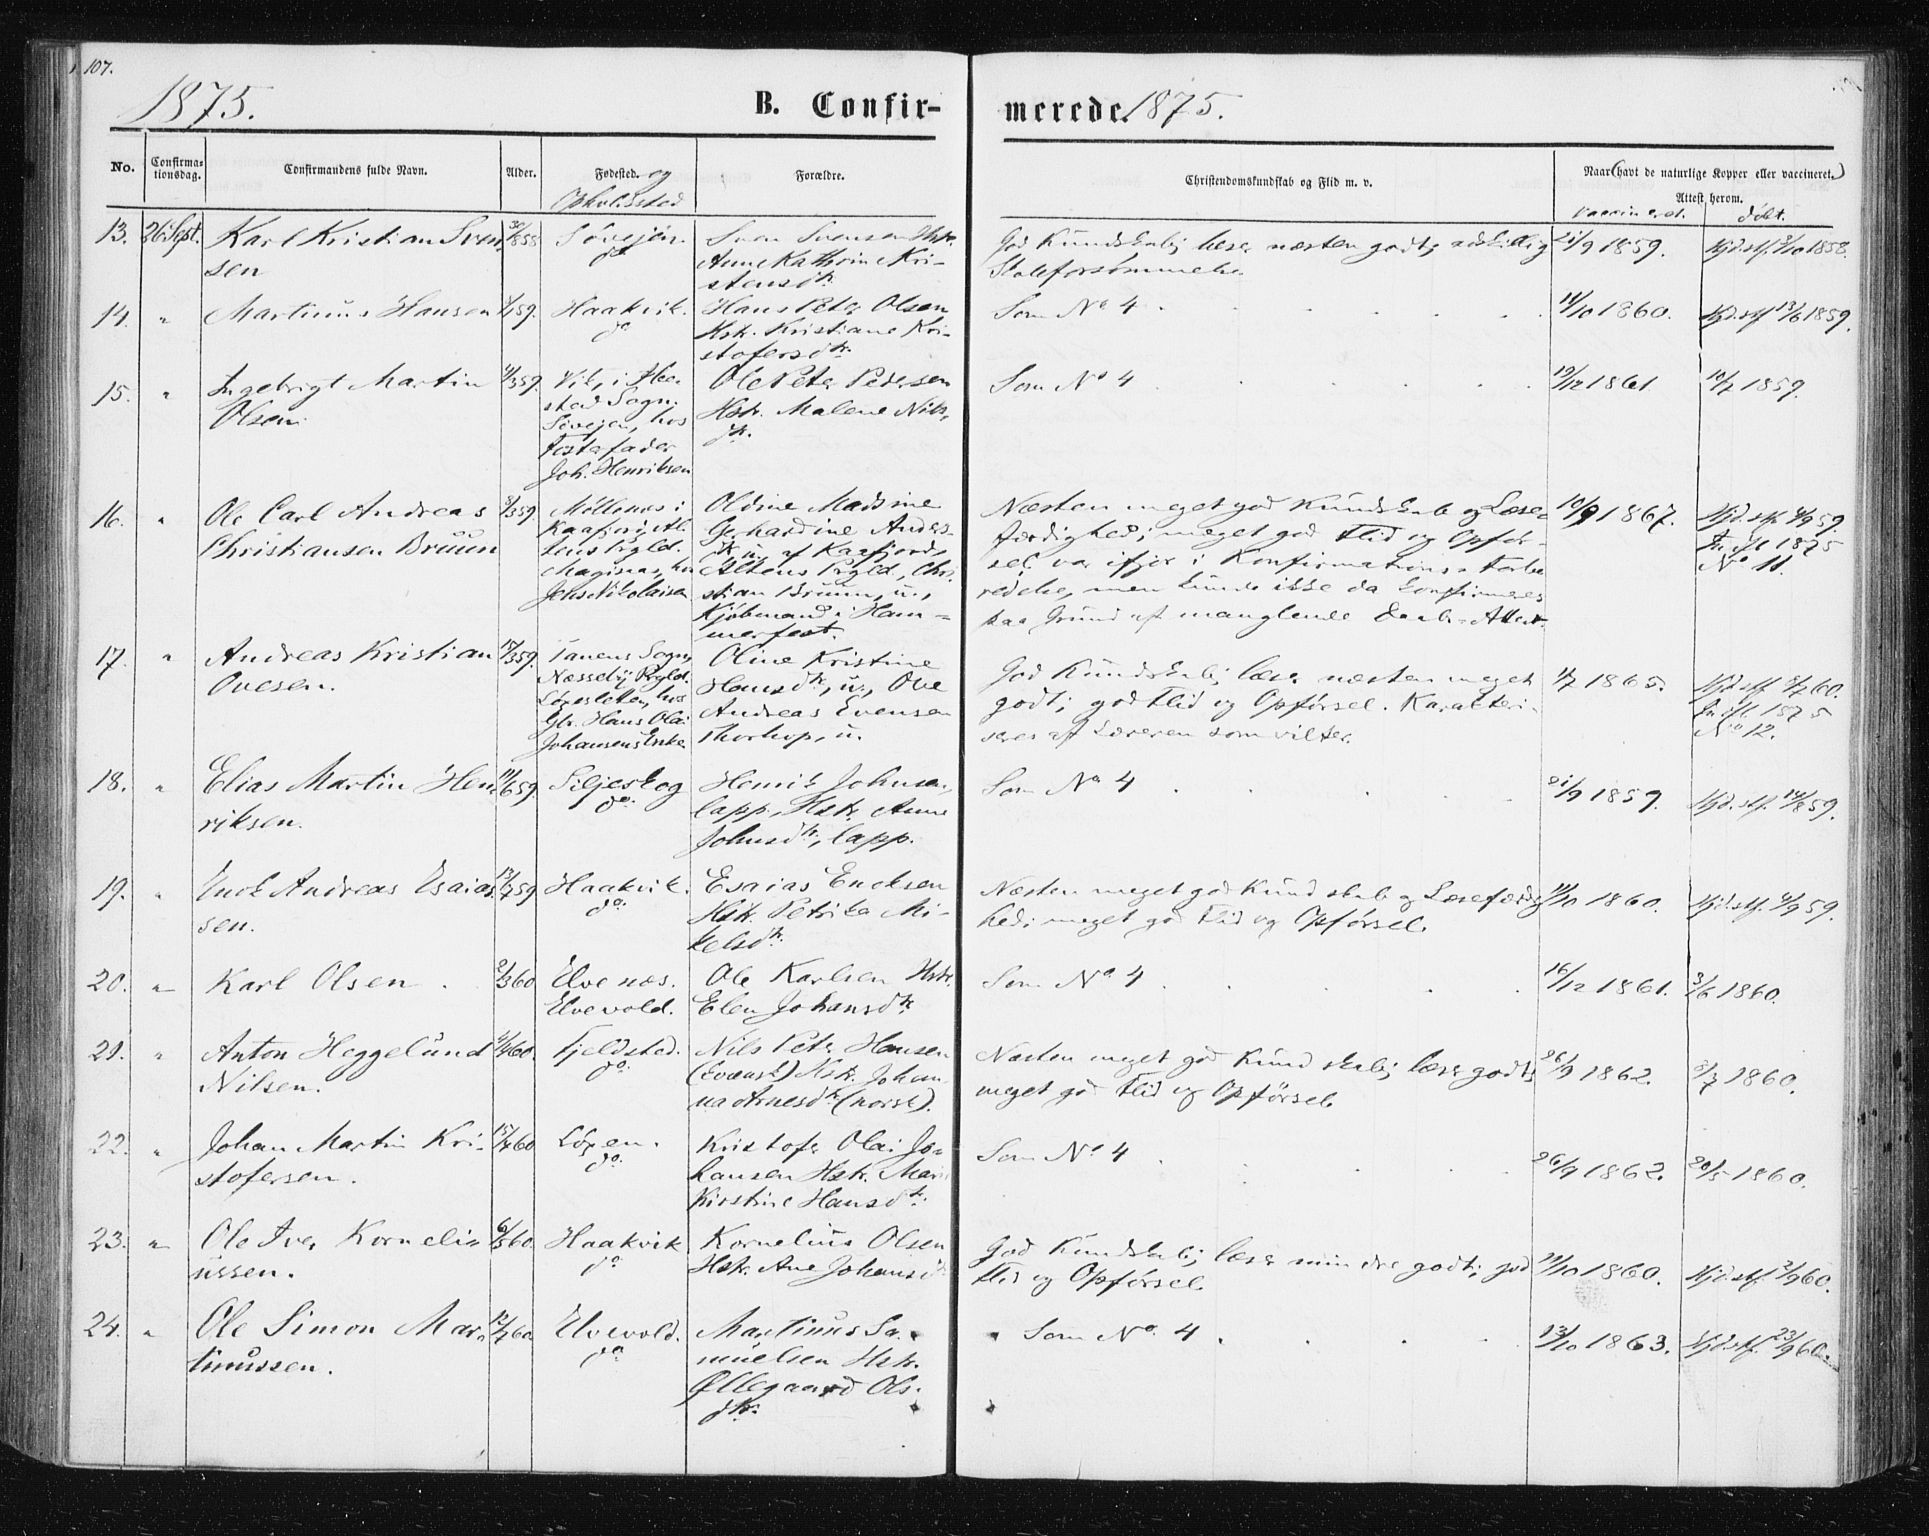 107.
1875.
B. Confir-
merede 1875.
No.
Confirma-
tionsdag.
Confirmandens fulde Navn.
Alder.
Fødested. og
Opholdssted
Forældre.
Christendomskundskab og Flid m. v.
Naar (havt de naturlige Kopper eller vaccineret.)
Attest herom.
vaccineret. døbt.
13. 26 Sept. Karl Kristian Sven-
sen
30/8 58
Søvejen.
do
Sven Svensen Hstr.
Anne Kathrin Kri-
stensdtr.
God Kundskab; læser næsten godt; adskillig
Skoleforsømmelse
21/9 1859.
Hjd. stf. 3/10 1858.
14. " Martinus Hansen
59.
Haakvik.
do
Hans Peter Olsen
Hstr. Kristiane Kri-
stofersdtr.
Som No 4
14/10 1860.
Hjd. stf 13/6 1859.
15. " Ingebrigt Martin
Olsen.
3 59.
Vik, i Ibe-
stad Sogn.
Søvejen, hos
Fosterfader
Joh. Henriksen
Ole Peter Pedersen
Hstr. Malene Nils-
dtr.
Som No 4
19/12 1861.
10/7 1859.
16. " Ole Carl Andreas
Christiansen Bruun
3 59.
Møllenes i
Kaafjord, Al-
tens Prgld.
hos
Jens Nikolaisen
Oldine Madsine
Gerhardine Anders-
dtr. u. af Kaafjord,
Altens Prgld., Chri-
stian Bruun, u.,
Kjøbmand i Ham-
merfest.
Næsten meget god Kundskab og Læse-
færdighed; meget god Flid og Opfør-
sel, var ifjor i Konfirmations-Forbe-
redelse, men kunde ikke da konfirmeres
paa Grund af manglende Daabs-Attest.
10/9 1867.
Hjd. stf. 4/9 59.
1875
No 11.
17. " Andreas Kristian
Ovesen.
3 59.
Tanens Sogn,
Næsseby Prgld.
hos
Hans Olai
Johansens Enke
Oline Kristine
Hansdtr, u., Ove
Andreas Evensen
Thorhop, u.
God Kundskab; læser næsten meget
godt; god Flid og Opførsel. Karakteri-
seres af Læreren som vilter.
1/7 1865.
60.
1875
No 12.
18. " Elias Martin Hen-
riksen.
6 59.
Siljeskog
do.
Henrik Johnsen,
lapp, Hstr. Anne
Johnsdtr., lapp.
Som No 4
21/9 1859.
Hjd. stf. 14/8 59.
19. " Enok Andreas Esaias-
sen.
13/7 59
Haakvik.
do.
Esaias Enoksen
Hstr. Petrika Mi-
kelsdtr.
Næsten meget god Kundskab og Læsefærdig-
hed; meget god Flid og Opførsel.
14/10 1860.
Hjd. stf. 4/9 59.
20. " Karl Olsen
2/3 60
Elvenæs.
Elvevold.
Ole Karlsen Hstr.
Elen Johansdtr.
Som No 4
16/12 1861.
3/6 1860.
21. " Anton Heggelund
Nilsen.
60.
Fjeldsted.
do.
Nils Peter Hansen
(kvænsk) Hstr. Johan-
na Arnesdtr (norsk).
Næsten meget god Kundskab; læser godt;
meget god Flid og Opførsel.
26/9 1862.
8/7 1860.
22. " Johan Martin Kri-
stofersen.
15/4 60
do.
Kristofer Olai Jo-
hansen Hstr. Maren
Kirstine Hansdtr.
Som No 4
26/9 1862.
28/5 1860.
23. " Ole Iver Korneli-
ussen.
6/3 60.
Haakvik
do
Kornelius Olsen
Hstr. Ane Johansdtr
God Kundskab; læser mindre godt; god
Flid og Opførsel.
14/10 1860.
Hjd. stf. 2/9 60.
24. " Ole Simon Mar-
tinussen.
12/7 60
Elvevold.
do
Martinus Sa-
muelsen Hstr.
Øllegaard Ols-
dtr.
Som No. 4
13/10 1863.
Hjd. stf. 23/9 60.